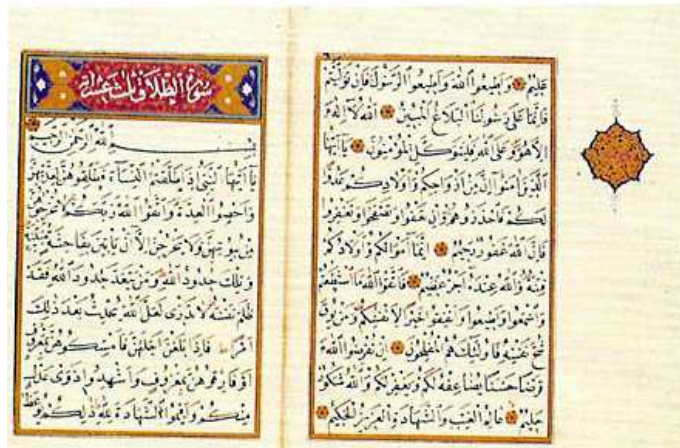 عَلِيمٌ وَأَطِيعُوا اللَّهَ وَأَطِيعُوا الرَّسُولَ فَإِنْ تَوَلَّيْتُمْ
فَإِنَّمَا عَلَى رَسُولِنَا الْبَلَاغُ الْمُبِينُ اللَّهُ لَا إِلَهَ
إِلَّا هُوَ وَعَلَى اللَّهِ فَلْيَتَوَكَّلِ الْمُؤْمِنُونَ يَا أَيُّهَا
الَّذِينَ آمَنُوا إِنَّ مِنْ أَزْوَاجِكُمْ وَأَوْلَادِكُمْ عَدُوًّا
لَكُمْ فَاحْذَرُوهُمْ وَإِنْ تَعْفُوا وَتَصْفَحُوا وَتَغْفِرُوا
فَإِنَّ اللَّهَ غَفُورٌ رَحِيمٌ إِنَّمَا أَمْوَالُكُمْ وَأَوْلَادُكُمْ
فِتْنَةٌ وَاللَّهُ عِنْدَهُ أَجْرٌ عَظِيمٌ فَاتَّقُوا اللَّهَ مَا اسْتَطَعْتُمْ
وَاسْمَعُوا وَأَطِيعُوا وَأَنْفِقُوا خَيْرًا لِأَنْفُسِكُمْ وَمَنْ يُوقَ
شُحَّ نَفْسِهِ فَأُولَئِكَ هُمُ الْمُفْلِحُونَ إِنْ تُقْرِضُوا اللَّهَ
قَرْضًا حَسَنًا يُضَاعِفْهُ لَكُمْ وَيَغْفِرْ لَكُمْ وَاللَّهُ شَكُورٌ
حَلِيمٌ عَالِمُ الْغَيْبِ وَالشَّهَادَةِ الْعَزِيزُ الْحَكِيمُ
سُورَةُ الطَّلَاقِ
بِسْمِ اللَّهِ الرَّحْمَنِ الرَّحِيمِ
يَا أَيُّهَا النَّبِيُّ إِذَا طَلَّقْتُمُ النِّسَاءَ فَطَلِّقُوهُنَّ لِعِدَّتِهِنَّ
وَأَحْصُوا الْعِدَّةَ وَاتَّقُوا اللَّهَ رَبَّكُمْ لَا تُخْرِجُوهُنَّ
مِنْ بُيُوتِهِنَّ وَلَا يَخْرُجْنَ إِلَّا أَنْ يَأْتِينَ بِفَاحِشَةٍ مُبَيِّنَةٍ
وَتِلْكَ حُدُودُ اللَّهِ وَمَنْ يَتَعَدَّ حُدُودَ اللَّهِ فَقَدْ
ظَلَمَ نَفْسَهُ لَا تَدْرِي لَعَلَّ اللَّهَ يُحْدِثُ بَعْدَ ذَلِكَ
أَمْرًا فَإِذَا بَلَغْنَ أَجَلَهُنَّ فَأَمْسِكُوهُنَّ بِمَعْرُوفٍ
أَوْ فَارِقُوهُنَّ بِمَعْرُوفٍ وَأَشْهِدُوا ذَوَيْ عَدْلٍ
مِنْكُمْ وَأَقِيمُوا الشَّهَادَةَ لِلَّهِ ذَلِكُمْ يُوعَظُ